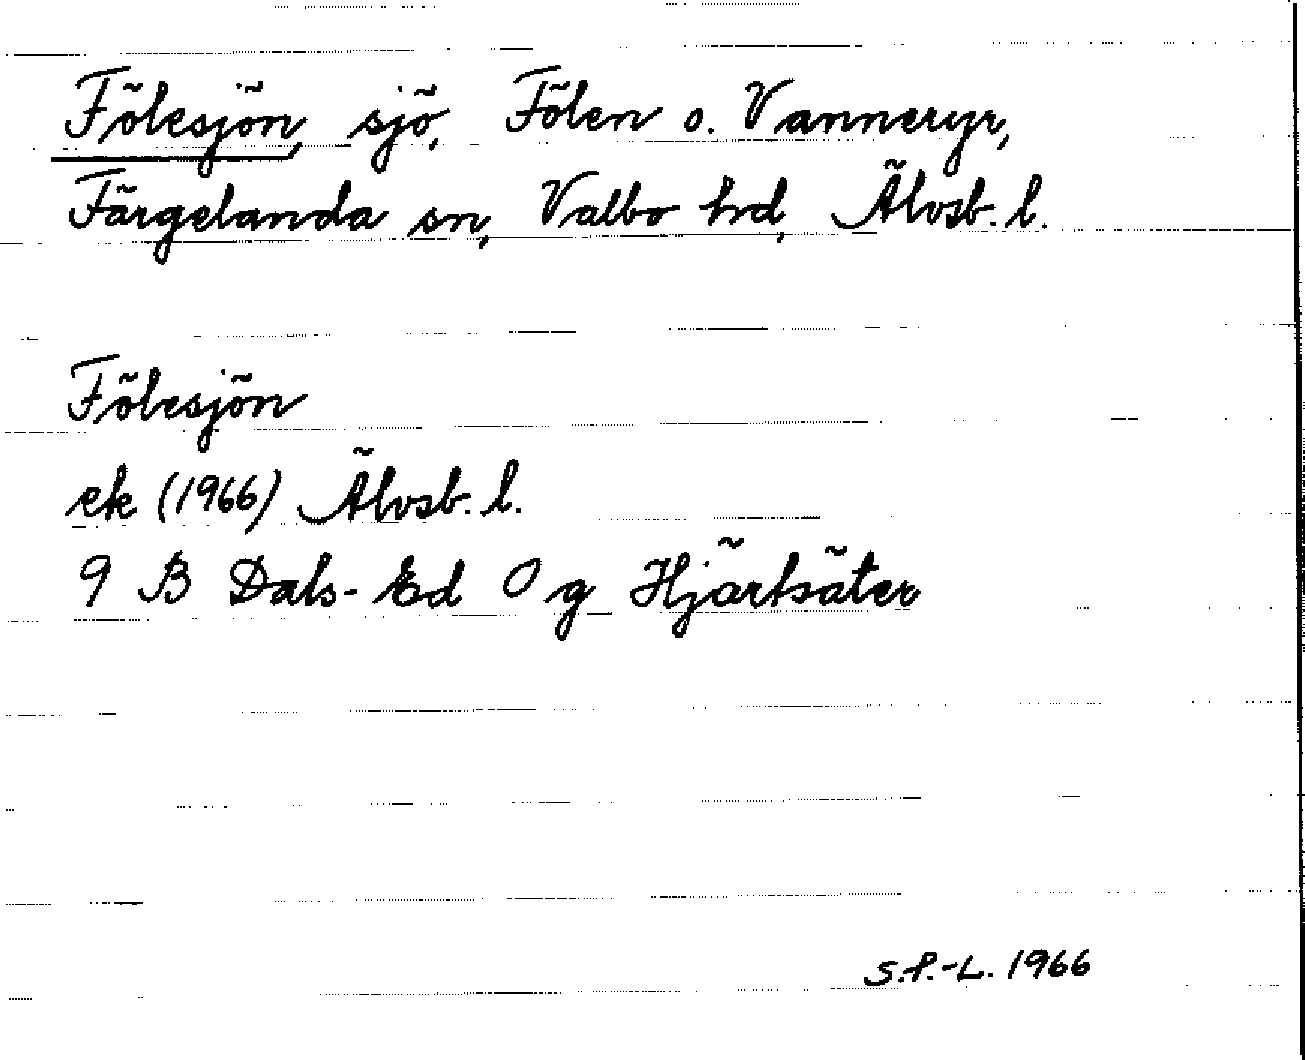 Fölesjön, sjö, Fölen o. Vanneryr,
Färgelanda sn, Valbo hd, Älvsb. l.
Fölesjön
ek (1966) Älvsb. l.
9 B Dals-Ed O g Hjärtsäter
S.P.-L. 1966